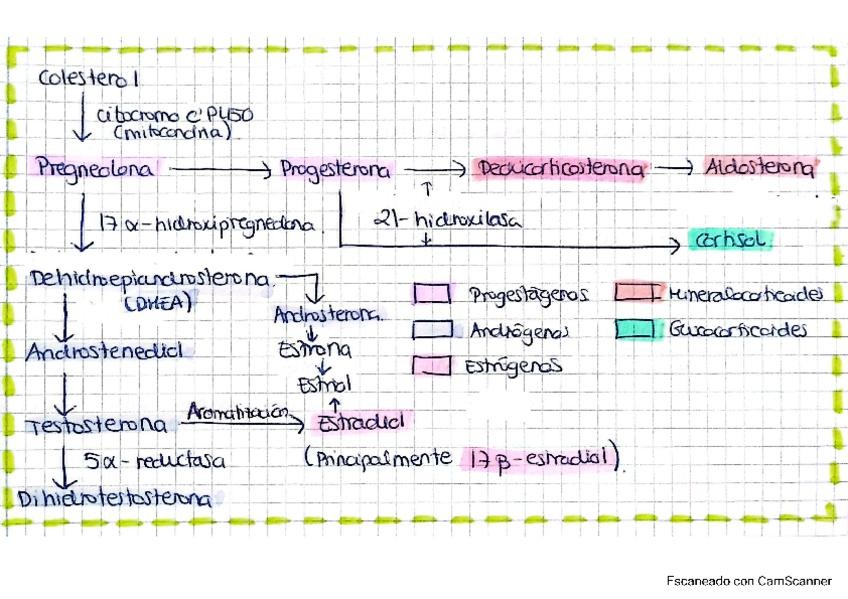 Colesterol
citocromo C P450
(mitocondria)
Pregneolona Progesterona Dexicorticosterona Aldosterona
17 α-hidroxipregnedona 21-hidroxilasa
Cortisol
Dehidroepiandrosterona
(DHEA)
Androsterona
Progestágenos Mineralocorticoides
Andrógenos Glucocorticoides
Androstenediol Estrona
Estrógenos
Estriol
Testosterona Aromatización Estradiol
5α-reductasa (Principalmente 17 β-estradial)
Dihidrotestosterona
Escaneado con CamScanner